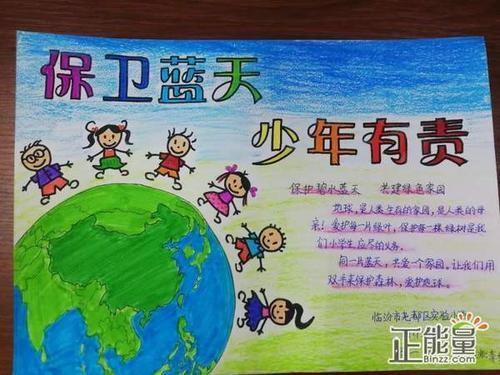 保卫蓝天
少年有责
保护碧水蓝天 共建绿色家园
地球,是人类生存的家园,是人类的母
亲!爱护每一片绿叶,保护每一棵绿树是我
们小学生应尽的义务。
同一片蓝天,共爱一个家园。让我们用
双手来保护森林,爱护地球。
临汾市尧都区实验小
正能量
Binzz.com